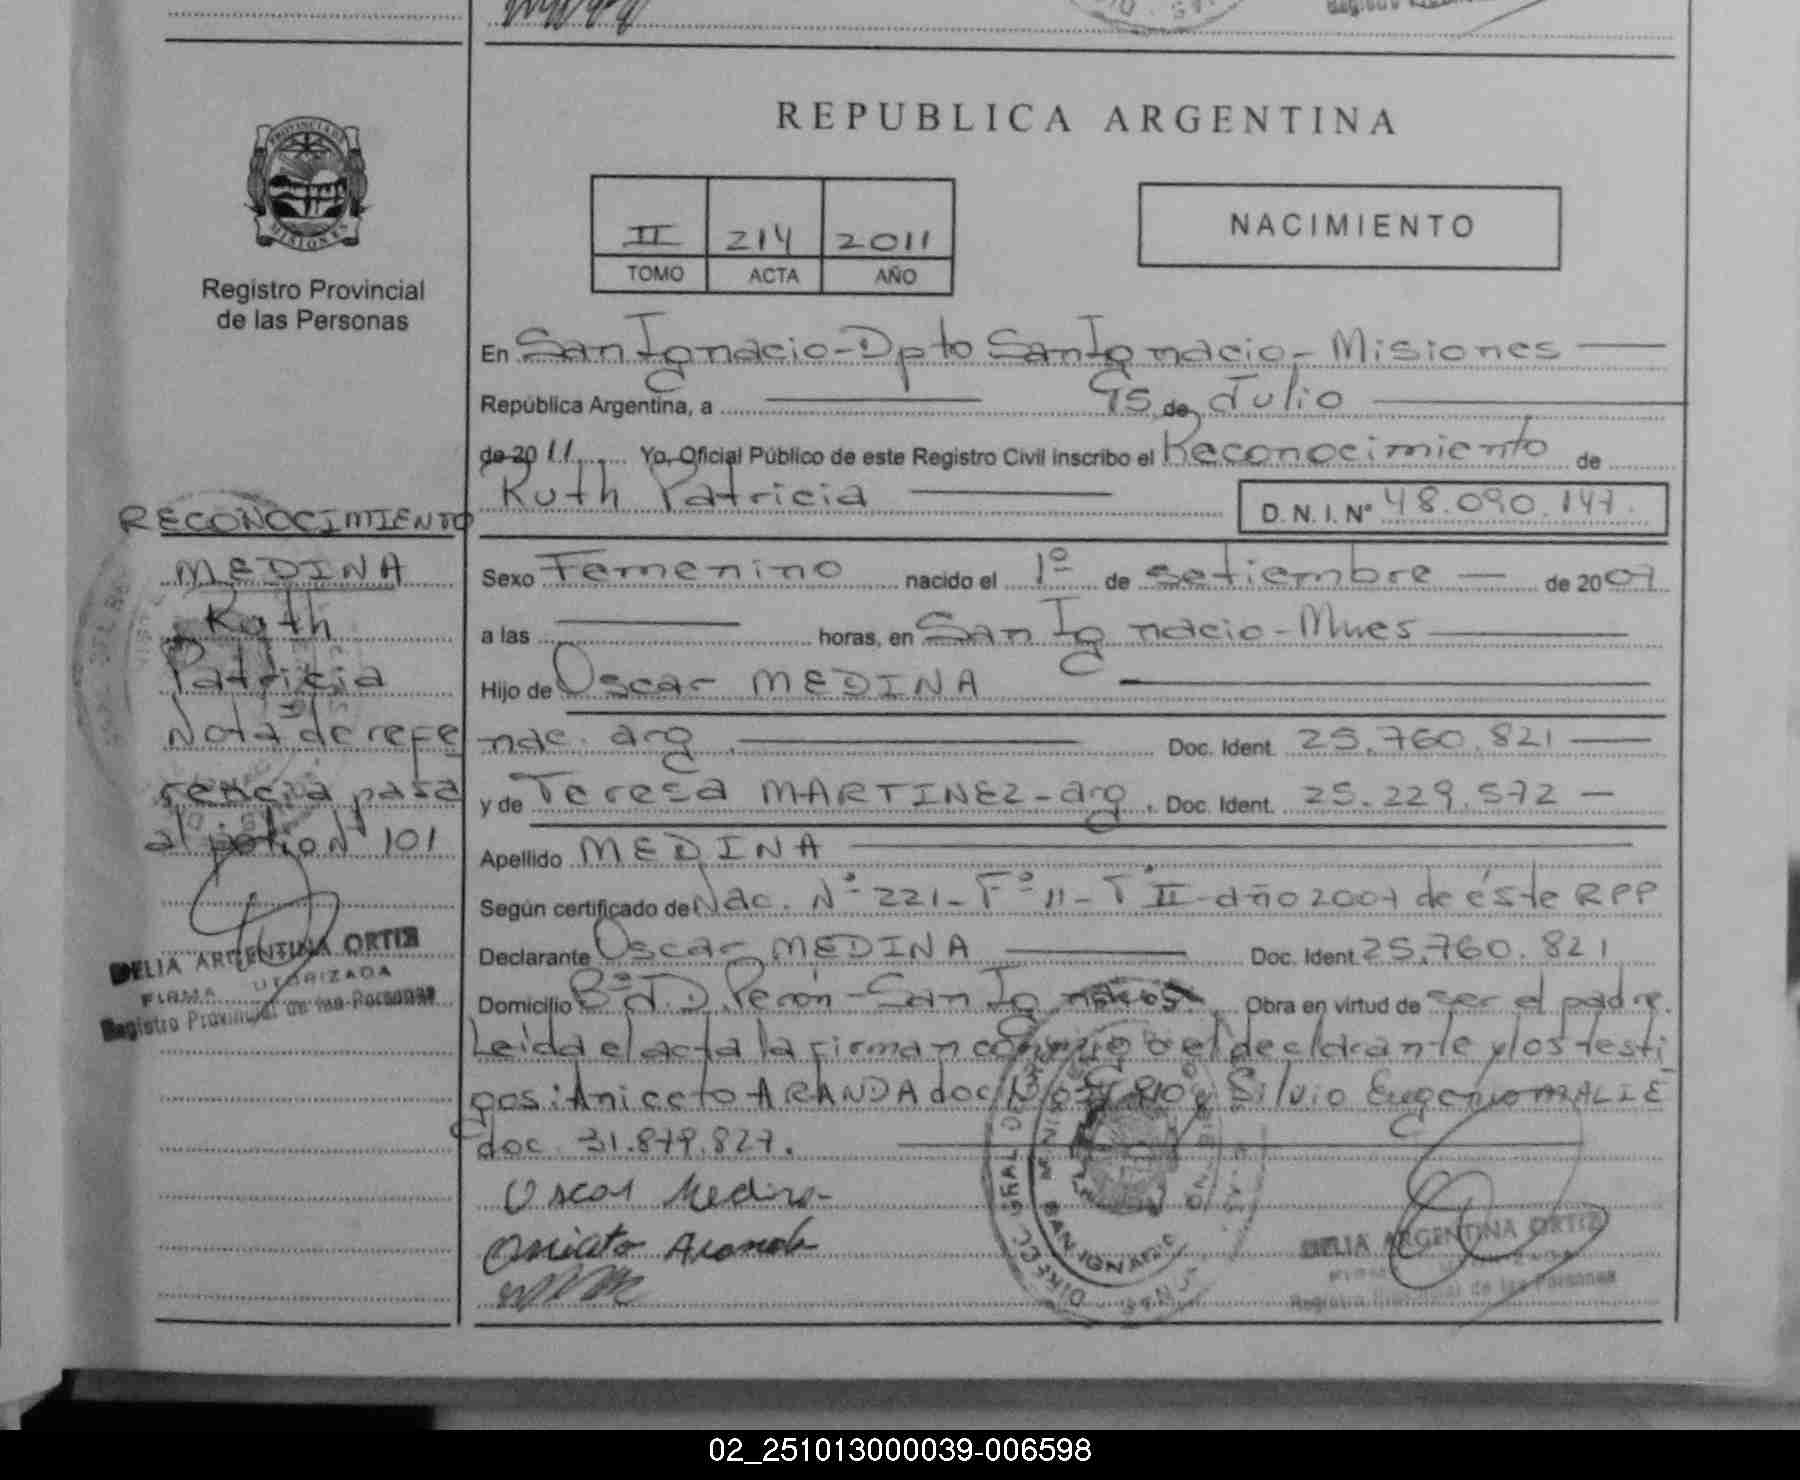 REPUBLICA ARGENTINA
PROVINCIA DE MISIONES
Registro Provincial
de las Personas
II 214 2011
TOMO ACTA AÑO
NACIMIENTO
En San Ignacio-Dpto San Ignacio-Misiones
República Argentina, a de Julio
de 20 11 Yo, Oficial Público de este Registro Civil inscribo el Reconocimiento de
Ruth Patricia
D. N. I. Nº 48.090.147.
Sexo Femenino nacido el 1º de setiembre de 2007
a las horas, en San Ignacio-Mnes
Hijo de Oscar MEDINA
nac. arg. Doc. Ident. 25.760.821
y de Teresa MARTINEZ-arg. Doc. Ident. 25.229.572
Apellido MEDINA
Según certificado de Nac. Nº 221-Fº 11-Tº II-año 2007 de éste RPP
Declarante Oscar MEDINA Doc. Ident. 25.760.821
Domicilio Bº J.D. Perón-San Ignacio. Obra en virtud de ser el padre.
Leida el acta la firman conmigo el declarante y los testi
gos: Aniceto ARANDA doc. y Silvio Eugenio
doc. 31.879.827.
Oscar Medina
Aniceto Aranda
RECONOCIMIENTO
MEDINA
Ruth
Patricia
Nota de refe
rencia pasa
al folio Nº 101
DELIA ARGENTINA ORTIZ
FIRMA AUTORIZADA
Registro Provincial de las Personas
SAN IGNACIO
DELIA ARGENTINA ORTIZ
Registro Provincial de las Personas
02_251013000039-006598